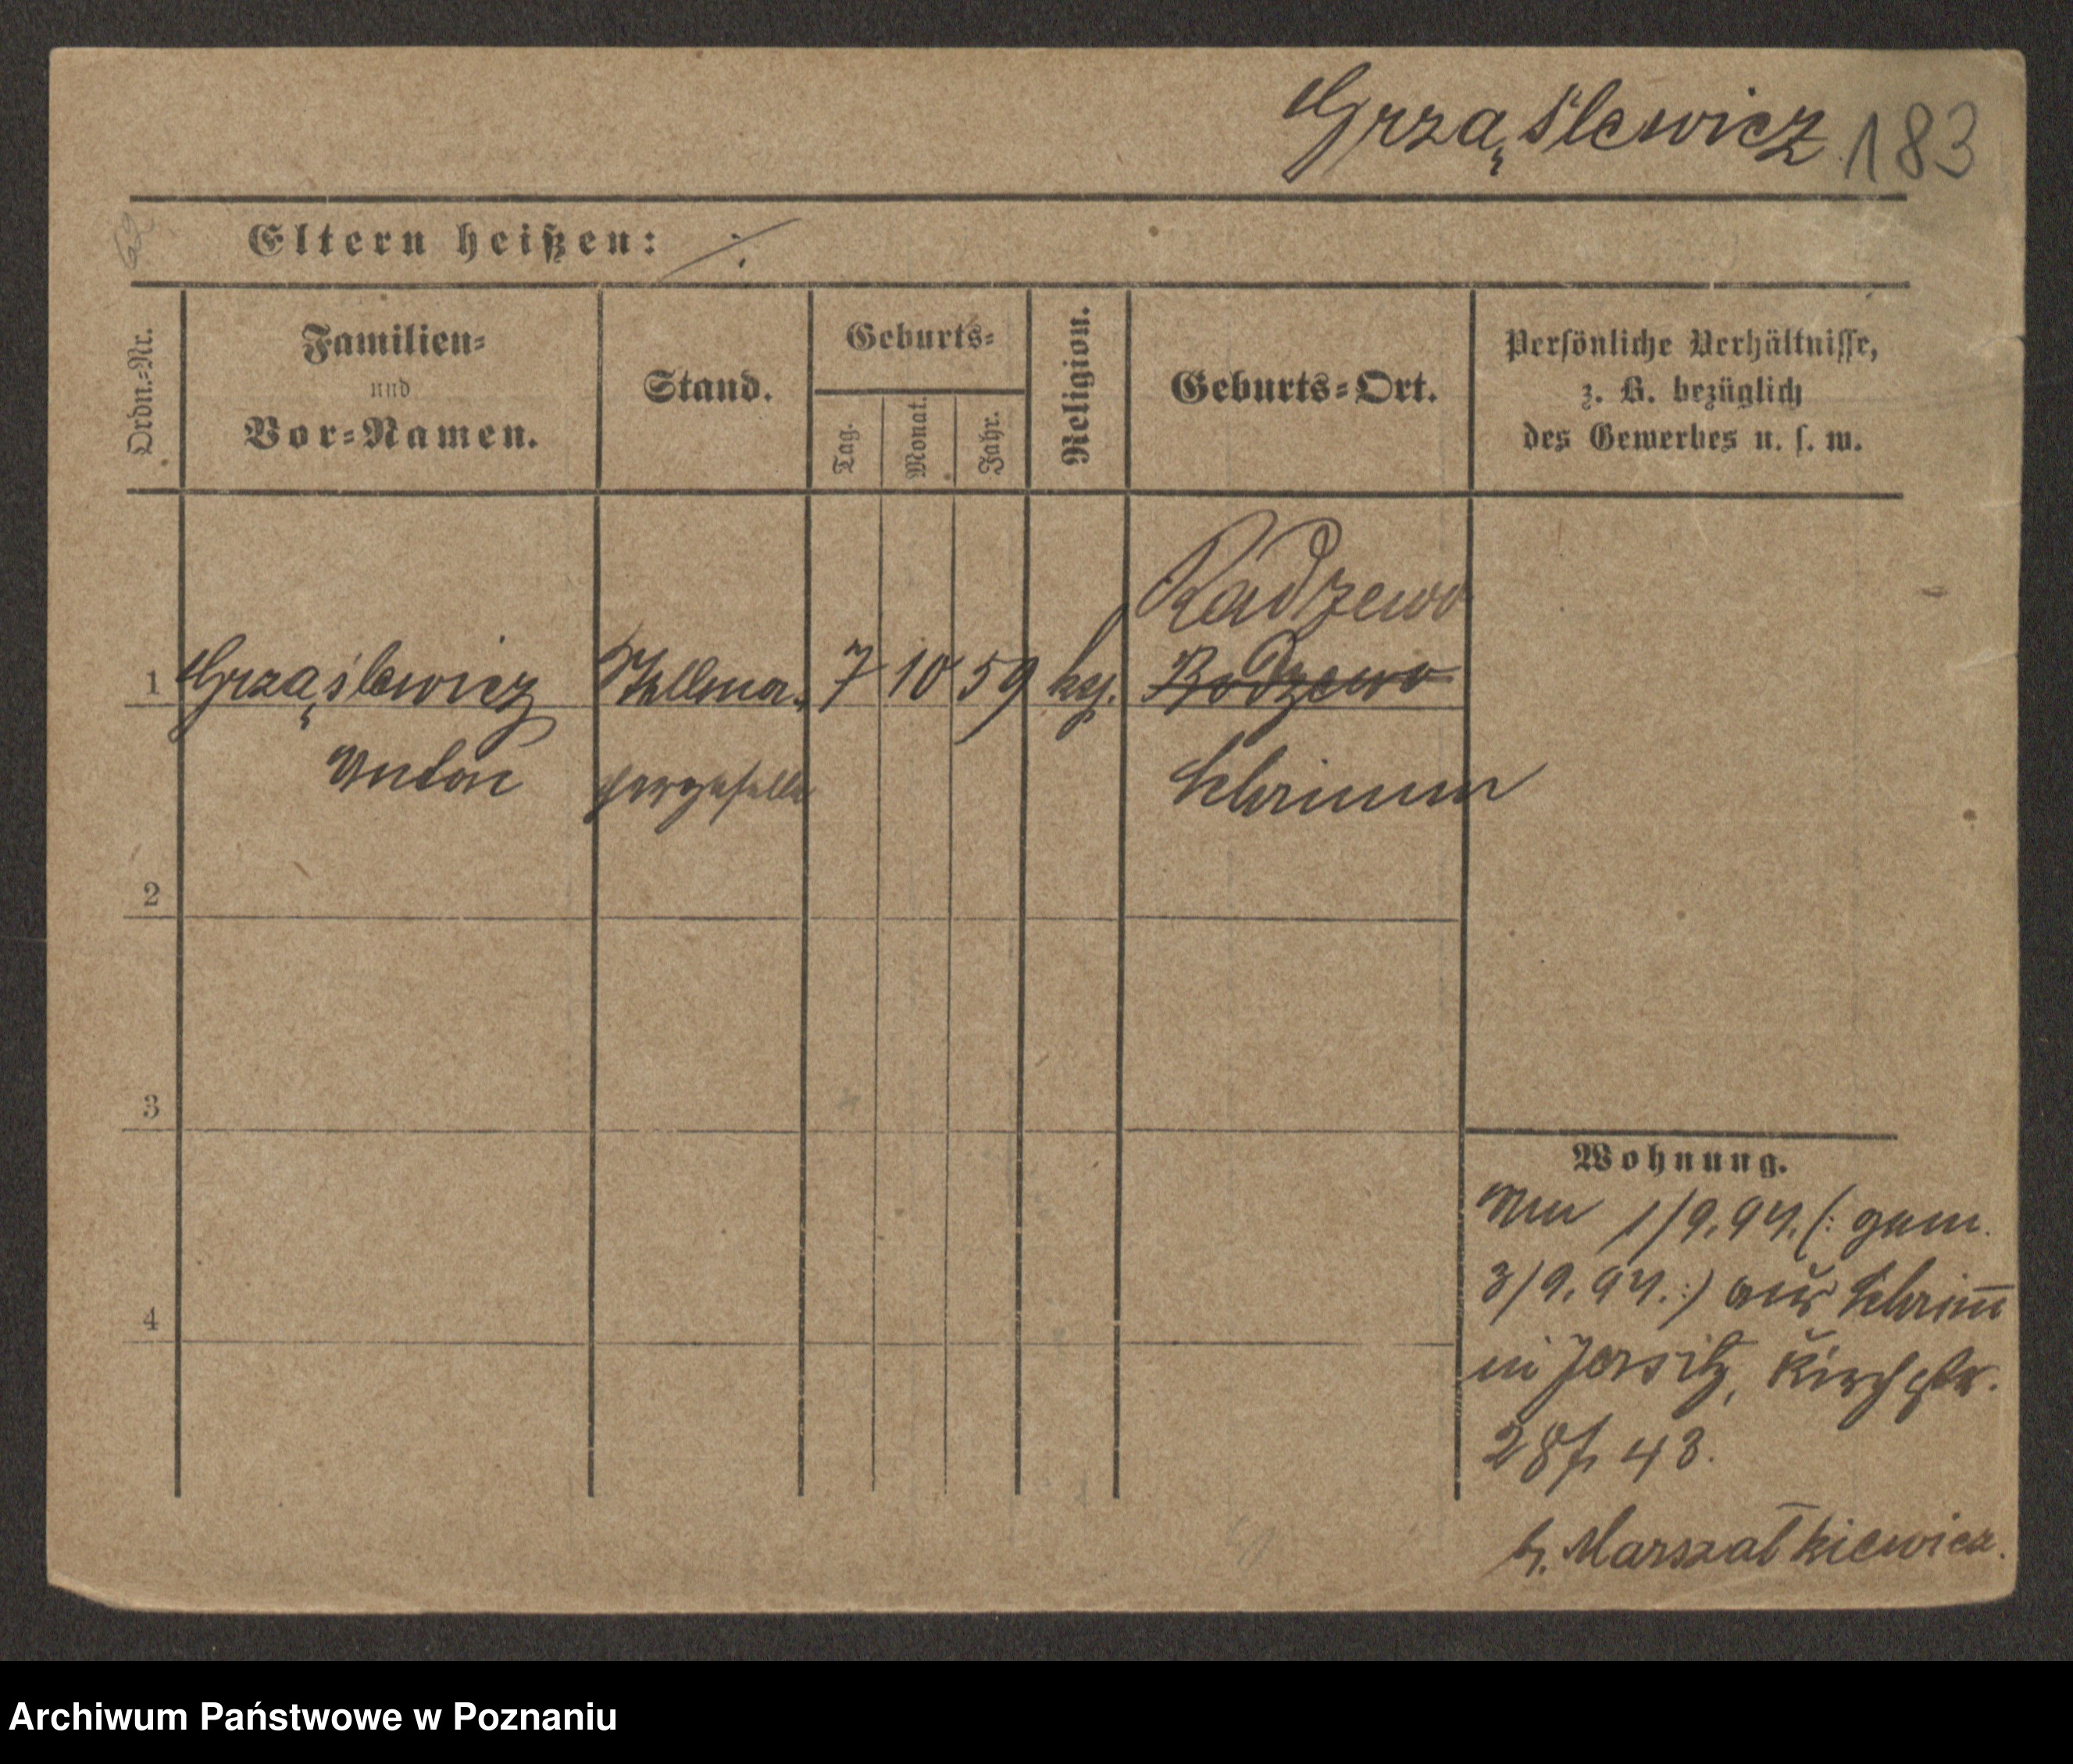 Grząślewicz 183
Eltern heißen: ./.
Ordn.-Nr.
Familien-
und
Vor-Namen.
Stand.
Geburts-
Tag.
Monat.
Jahr.
Religion.
Geburts-Ort.
Persönliche Verhältnisse,
z. B. bezüglich
des Gewerbes u. s. w.
Radzewo
1 Grząślewicz Stellma- 7 10 59 kg. Rodzewo
Anton chergeselle Schrimm
2
3
4
Wohnung.
Am 1/9.94. (: gem.
3/9.94. :) aus Schrim̄
in Jersitz, Kirchstr.
28 43.
b. Marszałkiewicz.
Archiwum Państwowe w Poznaniu